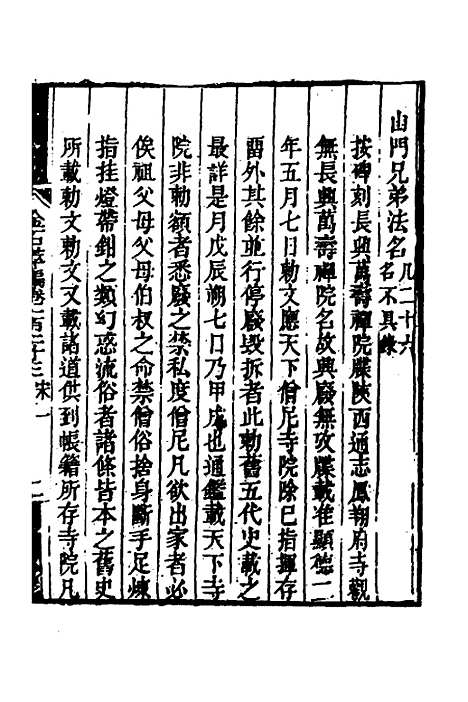 山門兄弟法名凡二十六名不具錄
按碑刻長興萬壽禪院牒陝西通志鳳翔府寺觀
無長興萬壽禪院名故興廢無攷牒載准顯德二
年五月七日勅文應天下僧尼寺院除已指揮存
畱外其餘並行停廢毀拆者此勅舊五代史載之
最詳是月戊辰朔七日乃甲戌也通鑑載天下寺
院非勅額者悉廢之禁私度僧尼凡欲出家者必
俟祖父母父母伯叔之命禁僧俗捨身斷手足煉
指挂燈帶鉗之類幻惑流俗者諸條皆本之舊史
所載勅文勅文又載諸道供到帳籍所存寺院凡
金石萃編卷一百二十三 宋一 二